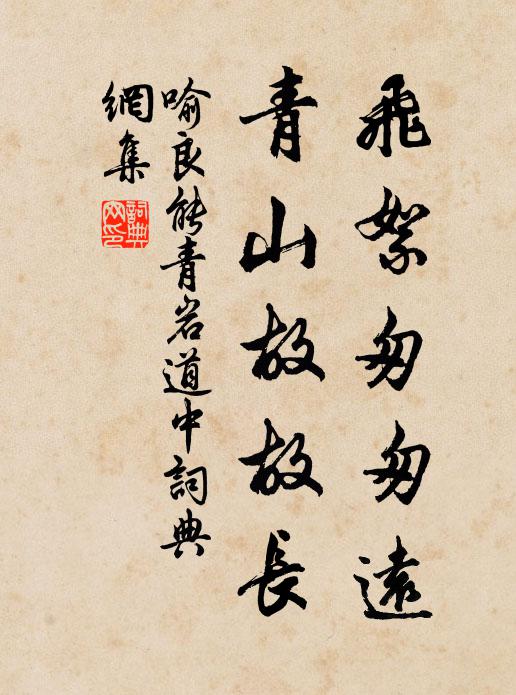 飛絮匆匆遠
青山故故長
喻良能青岩道中詞典
網集
詞典網印